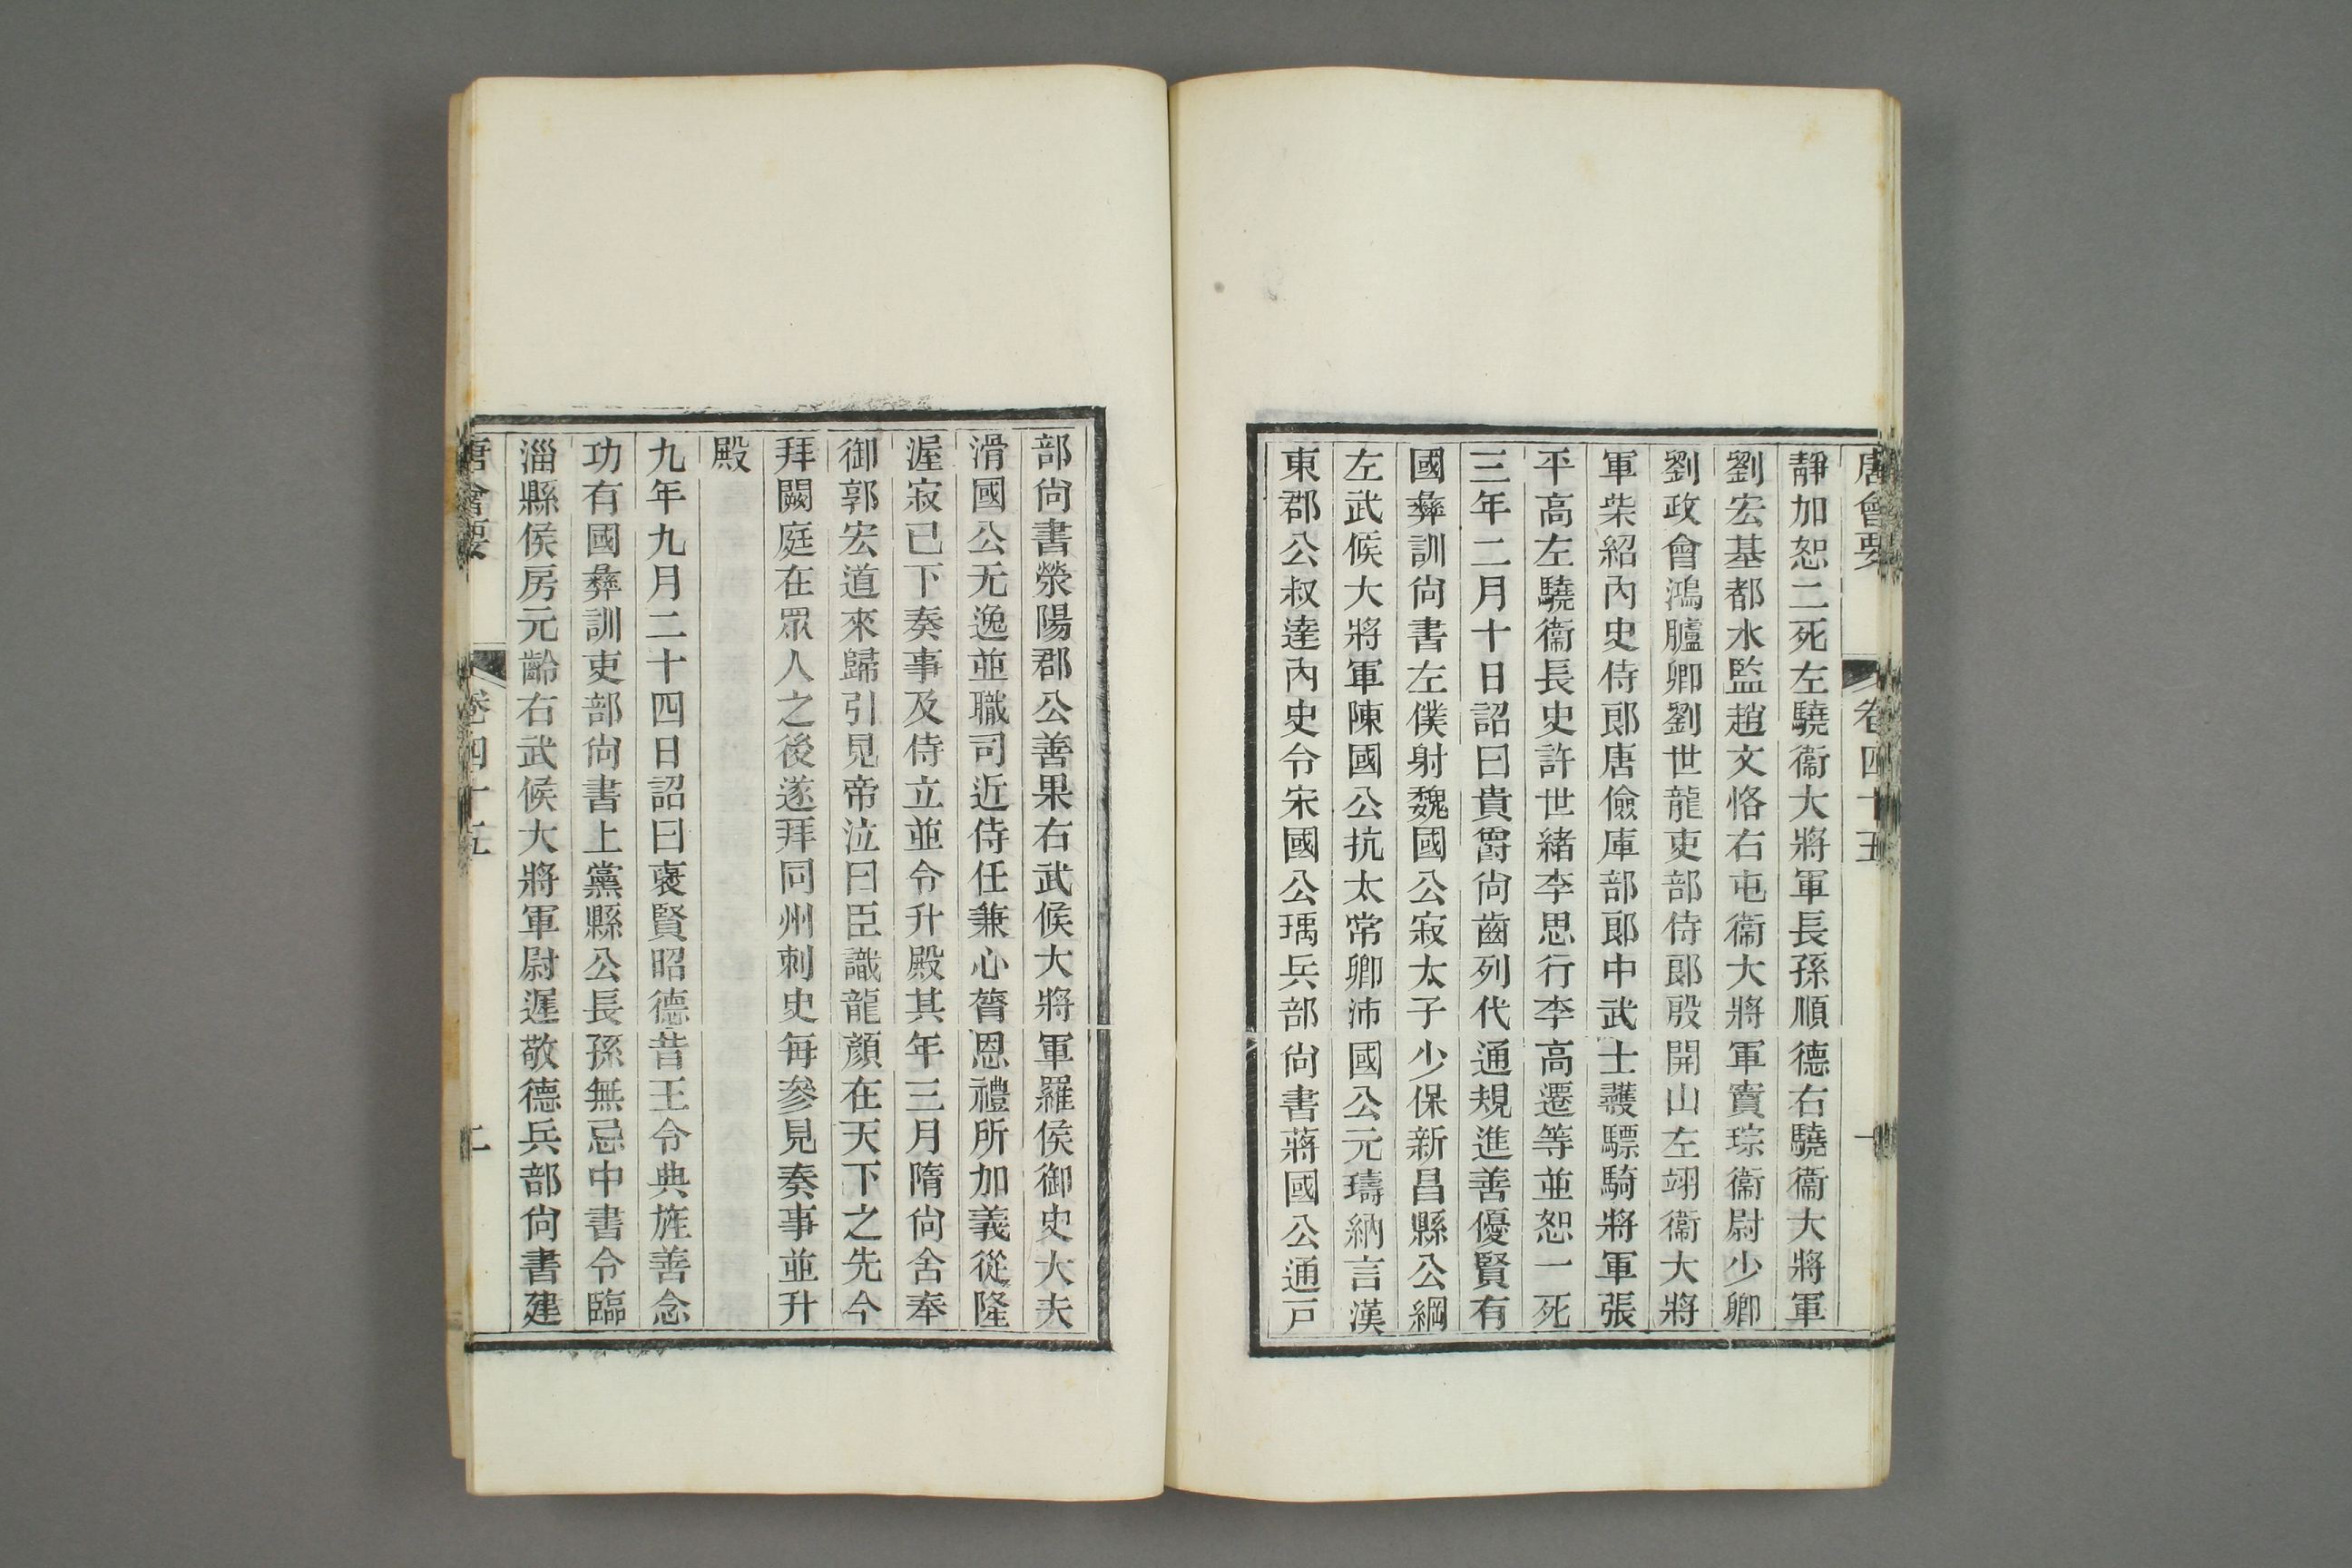 唐會要 卷四十五 一
靜加恕二死左驍衞大將軍長孫順德右驍衞大將軍
劉宏基都水監趙文恪右屯衞大將軍竇琮衞尉少卿
劉政會鴻臚卿劉世龍吏部侍郞殷開山左翊衞大將
軍柴紹內史侍郞唐儉庫部郞中武士彠驃騎將軍張
平高左驍衞長史許世緒李思行李高遷等並恕一死
三年二月十日詔曰貴爵尙齒列代通規進善優賢有
國彝訓尙書左僕射魏國公寂太子少保新昌縣公綱
左武候大將軍陳國公抗太常卿沛國公元璹納言漢
東郡公叔達內史令宋國公瑀兵部尙書蔣國公通戸
部尙書滎陽郡公善果右武候大將軍羅侯御史大夫
滑國公无逸並職司近侍任兼心膂恩禮所加義從隆
渥寂已下奏事及侍立並令升殿其年三月隋尙舍奉
御郭宏道來歸引見帝泣曰臣識龍顏在天下之先今
拜闕庭在眾人之後遂拜同州刺史每參見奏事並升
殿
九年九月二十四日詔曰褒賢昭德昔王令典旌善念
功有國彝訓吏部尙書上黨縣公長孫無忌中書令臨
淄縣侯房元齡右武候大將軍尉遲敬德兵部尙書建
唐會要 卷四十五 二